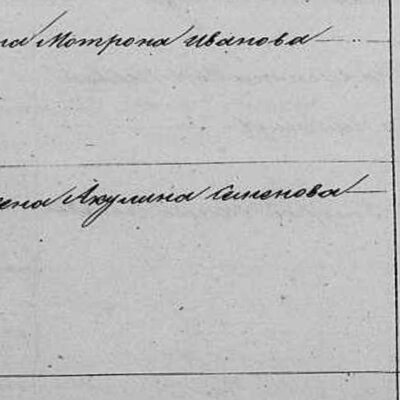 на Мотрона Иванова
ена Акулина Семенова